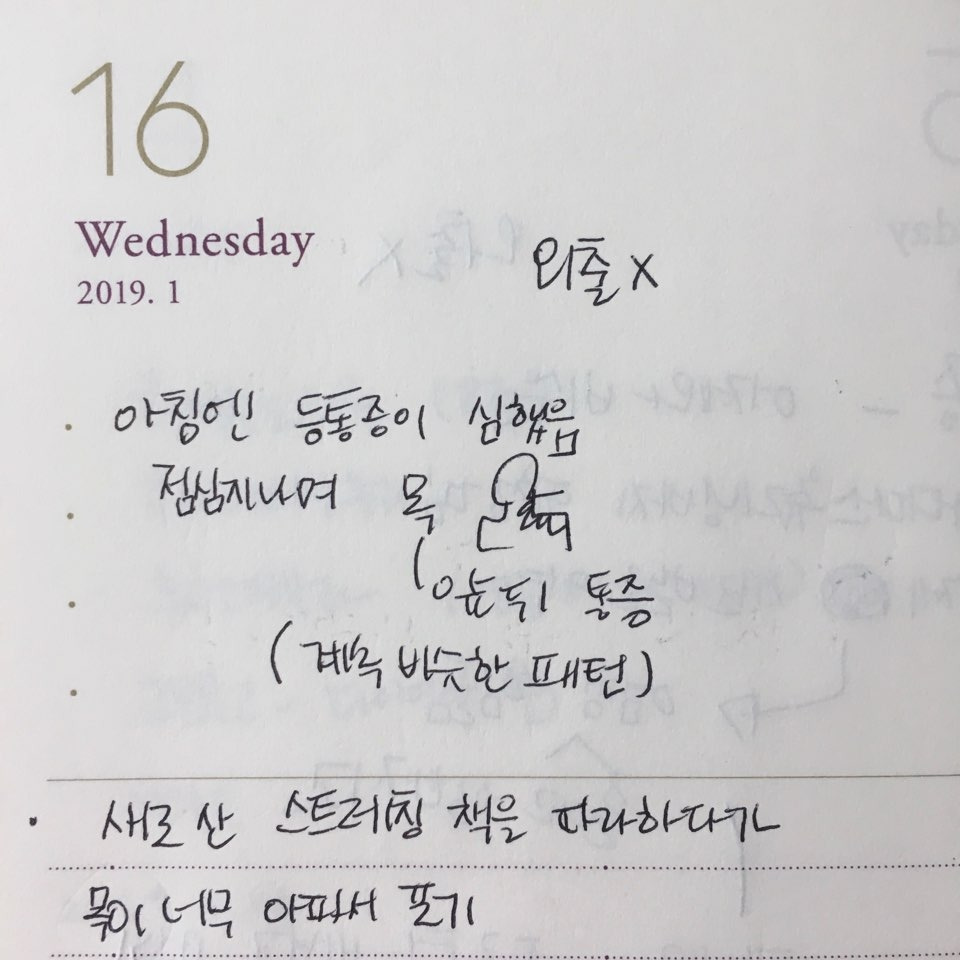 16
Wednesday
2019. 1
외출 X
아침엔 등통증이 심했음
점심지나며 목
앞뒤 통증
(계속 비슷한 패턴)
새로 산 스트레칭 책을 따라하다가
목이 너무 아파서 포기